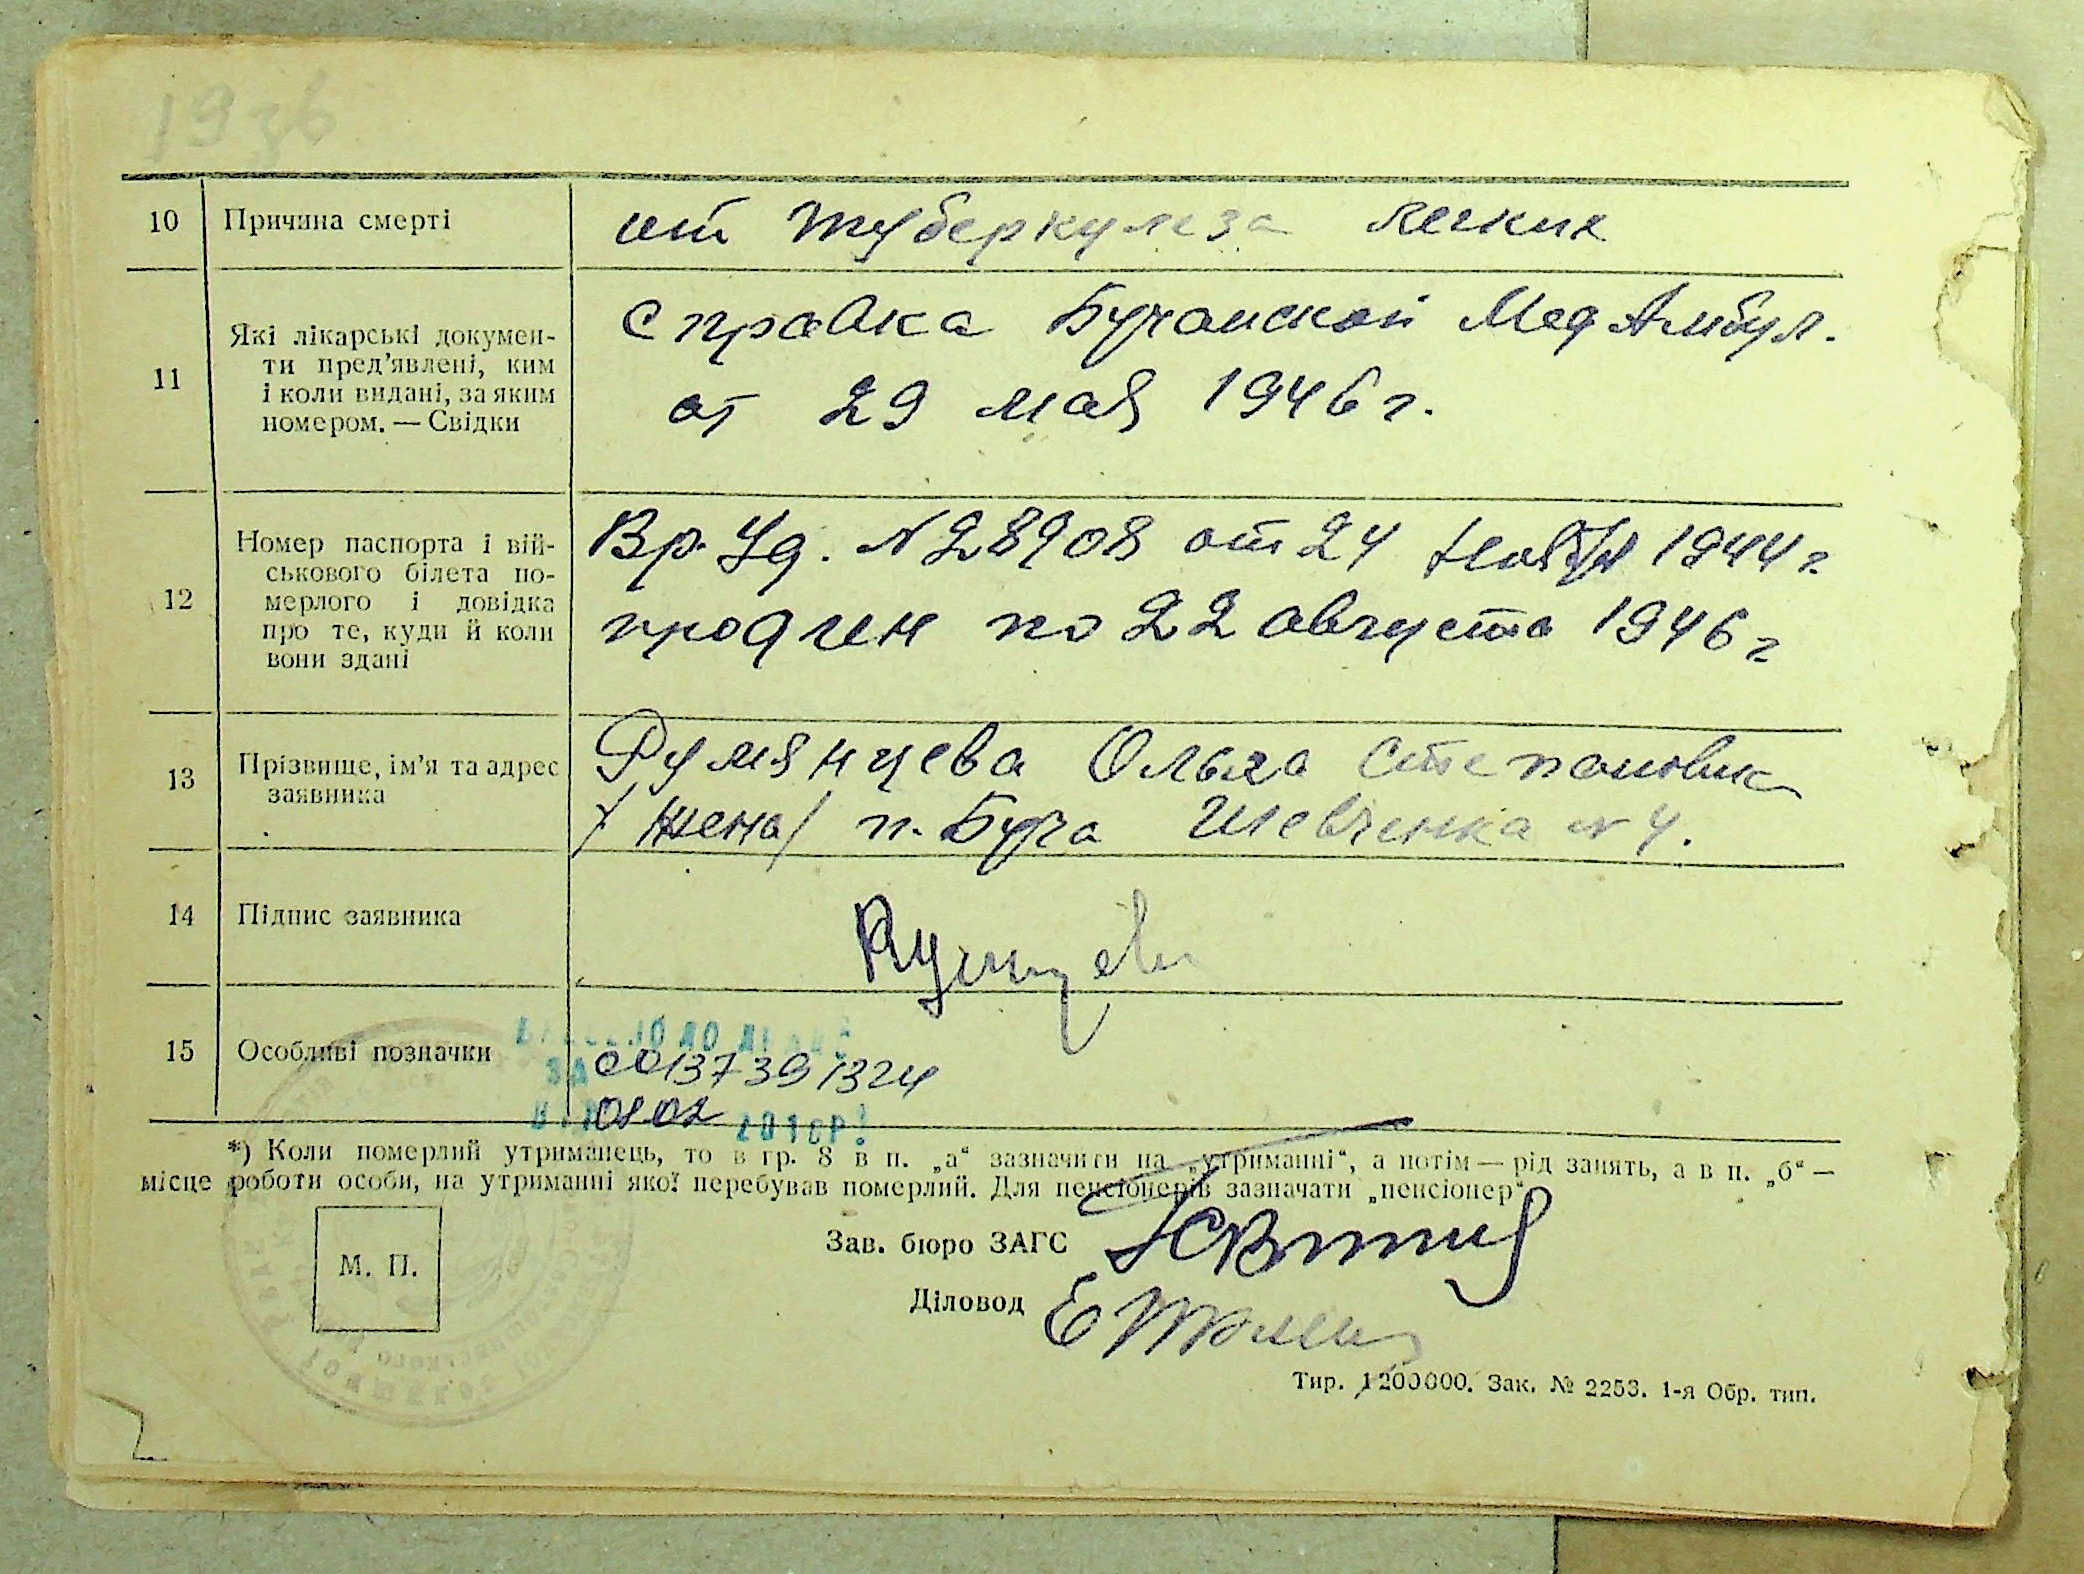 1936
10 Причина смерті от туберкулеза легких
11 Які лікарські докумен-
ти пред'явлені, ким
і коли видані, за яким
номером. — Свідки
справка Бучанской Мед Амбул.
от 29 мая 1946 г.
12 Номер паспорта і вій-
ськового білета по-
мерлого і довідка
про те, куди й коли
вони здані
Вр. Уд. № 28908 от 24 ноября 1944 г
продлен по 22 августа 1946 г
13 Прізвище, ім'я та адрес
заявника
Румянцева Ольга Степановна
/жена/ п. Буча Шевченка № 4.
14 Підпис заявника
15 Особливі позначки
ДО
ЗА 00137391324
01.02 201 Р!
*) Коли померлий утриманець, то в гр. 8 в п. „а“ зазначити на „утриманні“, а потім — рід занять, а в п. „б“ —
місце роботи особи, на утриманні якої перебував померлий. Для пенсіонерів зазначати „пенсіонер“
М. П.
Зав. бюро ЗАГС
Діловод
Тир. 1200000. Зак. № 2253. 1-я Обр. тип.